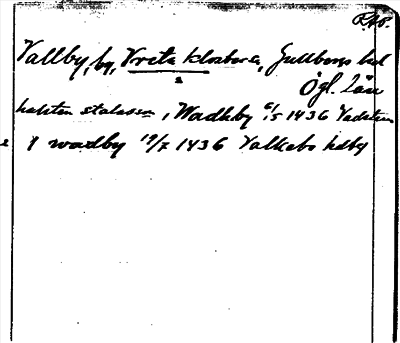 R.A.P.
Vallby, by, Vreta klosters, Gullbergs hd
Ögl. län
, Wadhby 6/5 1436 Vadstena
2 J wadby 19/7 1436 Valkebo hdby